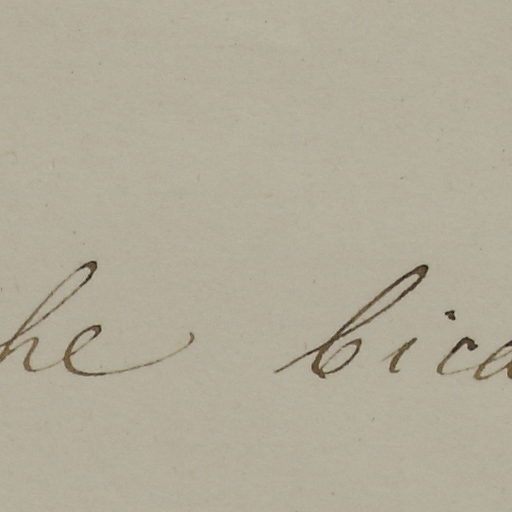 he bica